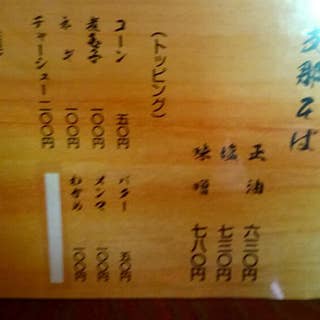 支那そば
正油 六三〇円
塩 七三〇円
味噌 七八〇円
(トッピング)
コーン 五〇円
バター 五〇円
煮玉子 一〇〇円
メンマ 一〇〇円
ネギ 一〇〇円
わかめ 一〇〇円
チャーシュー 二〇〇円